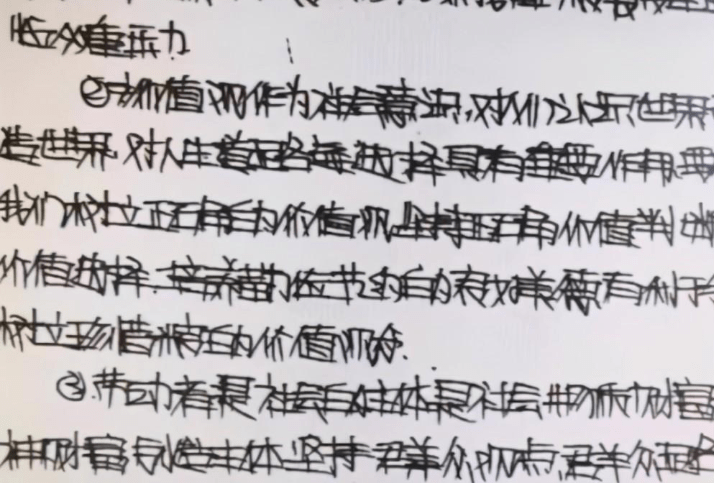 众重压力
②价值观作为社会意识,对人们认识世界
造世界,对人生道路的选择具有重要作用,要
我们树立正确的价值观,坚持正确价值判断
价值选择,培养勤俭节约的美德,有利于
树立珍惜粮食的价值观念.
③劳动者是社会的主体,是社会物质财富
神财富创造主体,坚持群众观点,群众路